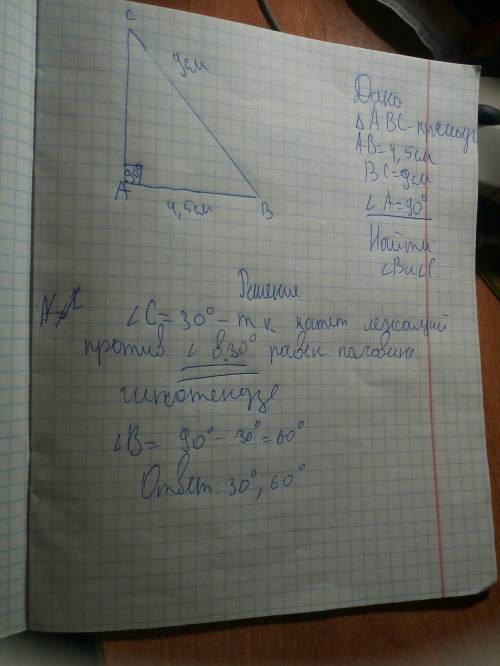 C
9см
90°
A
4,5см
B
Дано
△ABC - прямоуг.
AB=4,5см
BC=9см
∠A=90°
Найти:
∠B и ∠C.
Решение
∠C=30° - т к катет лежащий
против ∠ в 30° равен половине
гипотенузе
∠B= 90°-30°=60°
Ответ: 30°; 60°